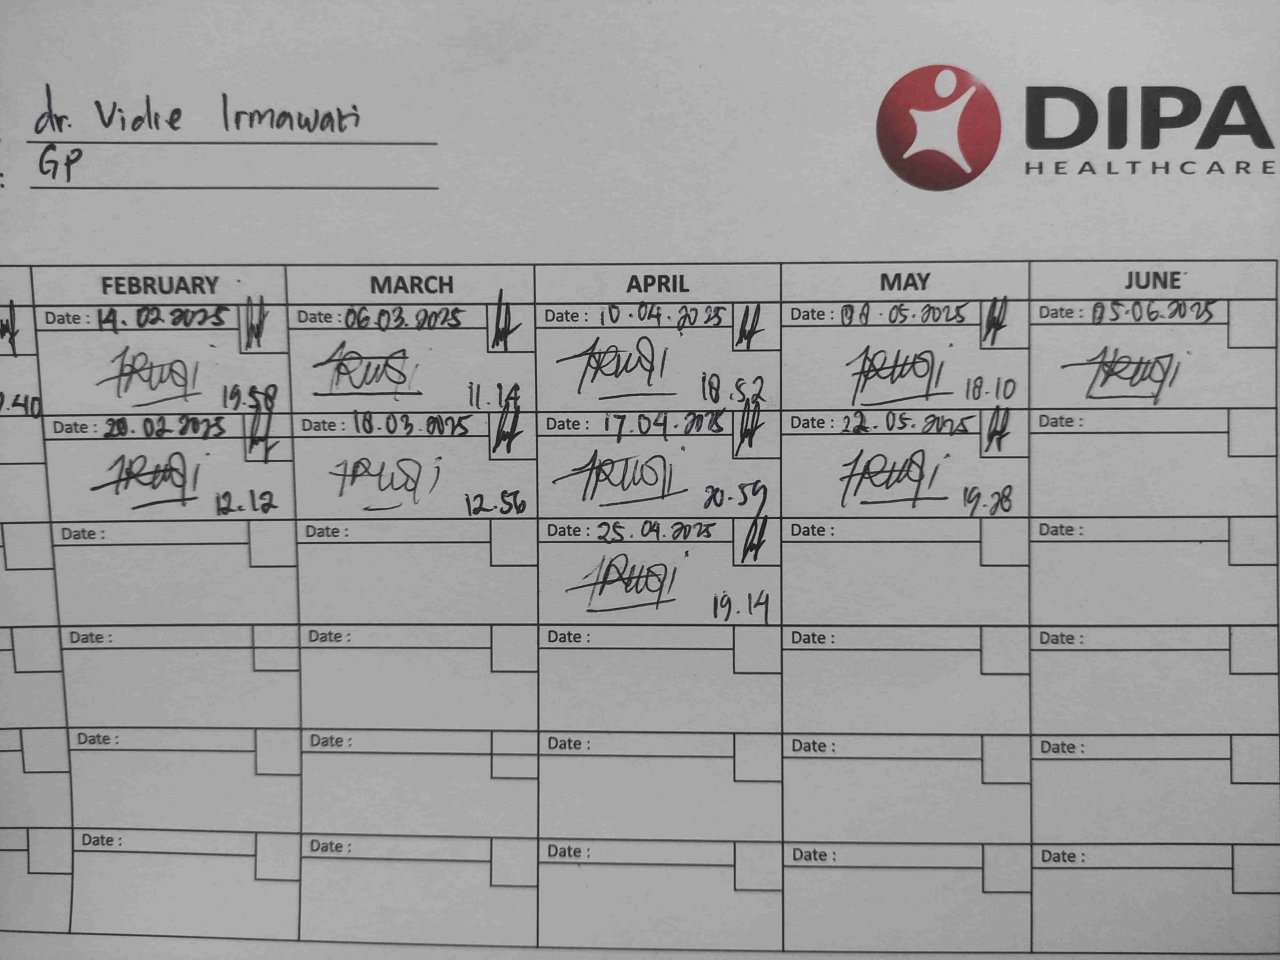 dr. Vidie Irmawati
GP
DIPA
HEALTHCARE
FEBRUARY MARCH APRIL MAY JUNE
Date : 14.02.2025 Date : 06.03.2025 Date : 10.04.2025 Date : 08.05.2025 Date : 05.06.2025
.40 19.58 11.14 18.52 18.10
Date : 20.02.2025 Date : 18.03.2025 Date : 17.04.2025 Date : 22.05.2025 Date :
12.12 12.56 20.59 19.28
Date : Date : Date : 25.04.2025 Date : Date :
19.14
Date : Date : Date : Date : Date :
Date : Date : Date : Date : Date :
Date : Date : Date : Date : Date :